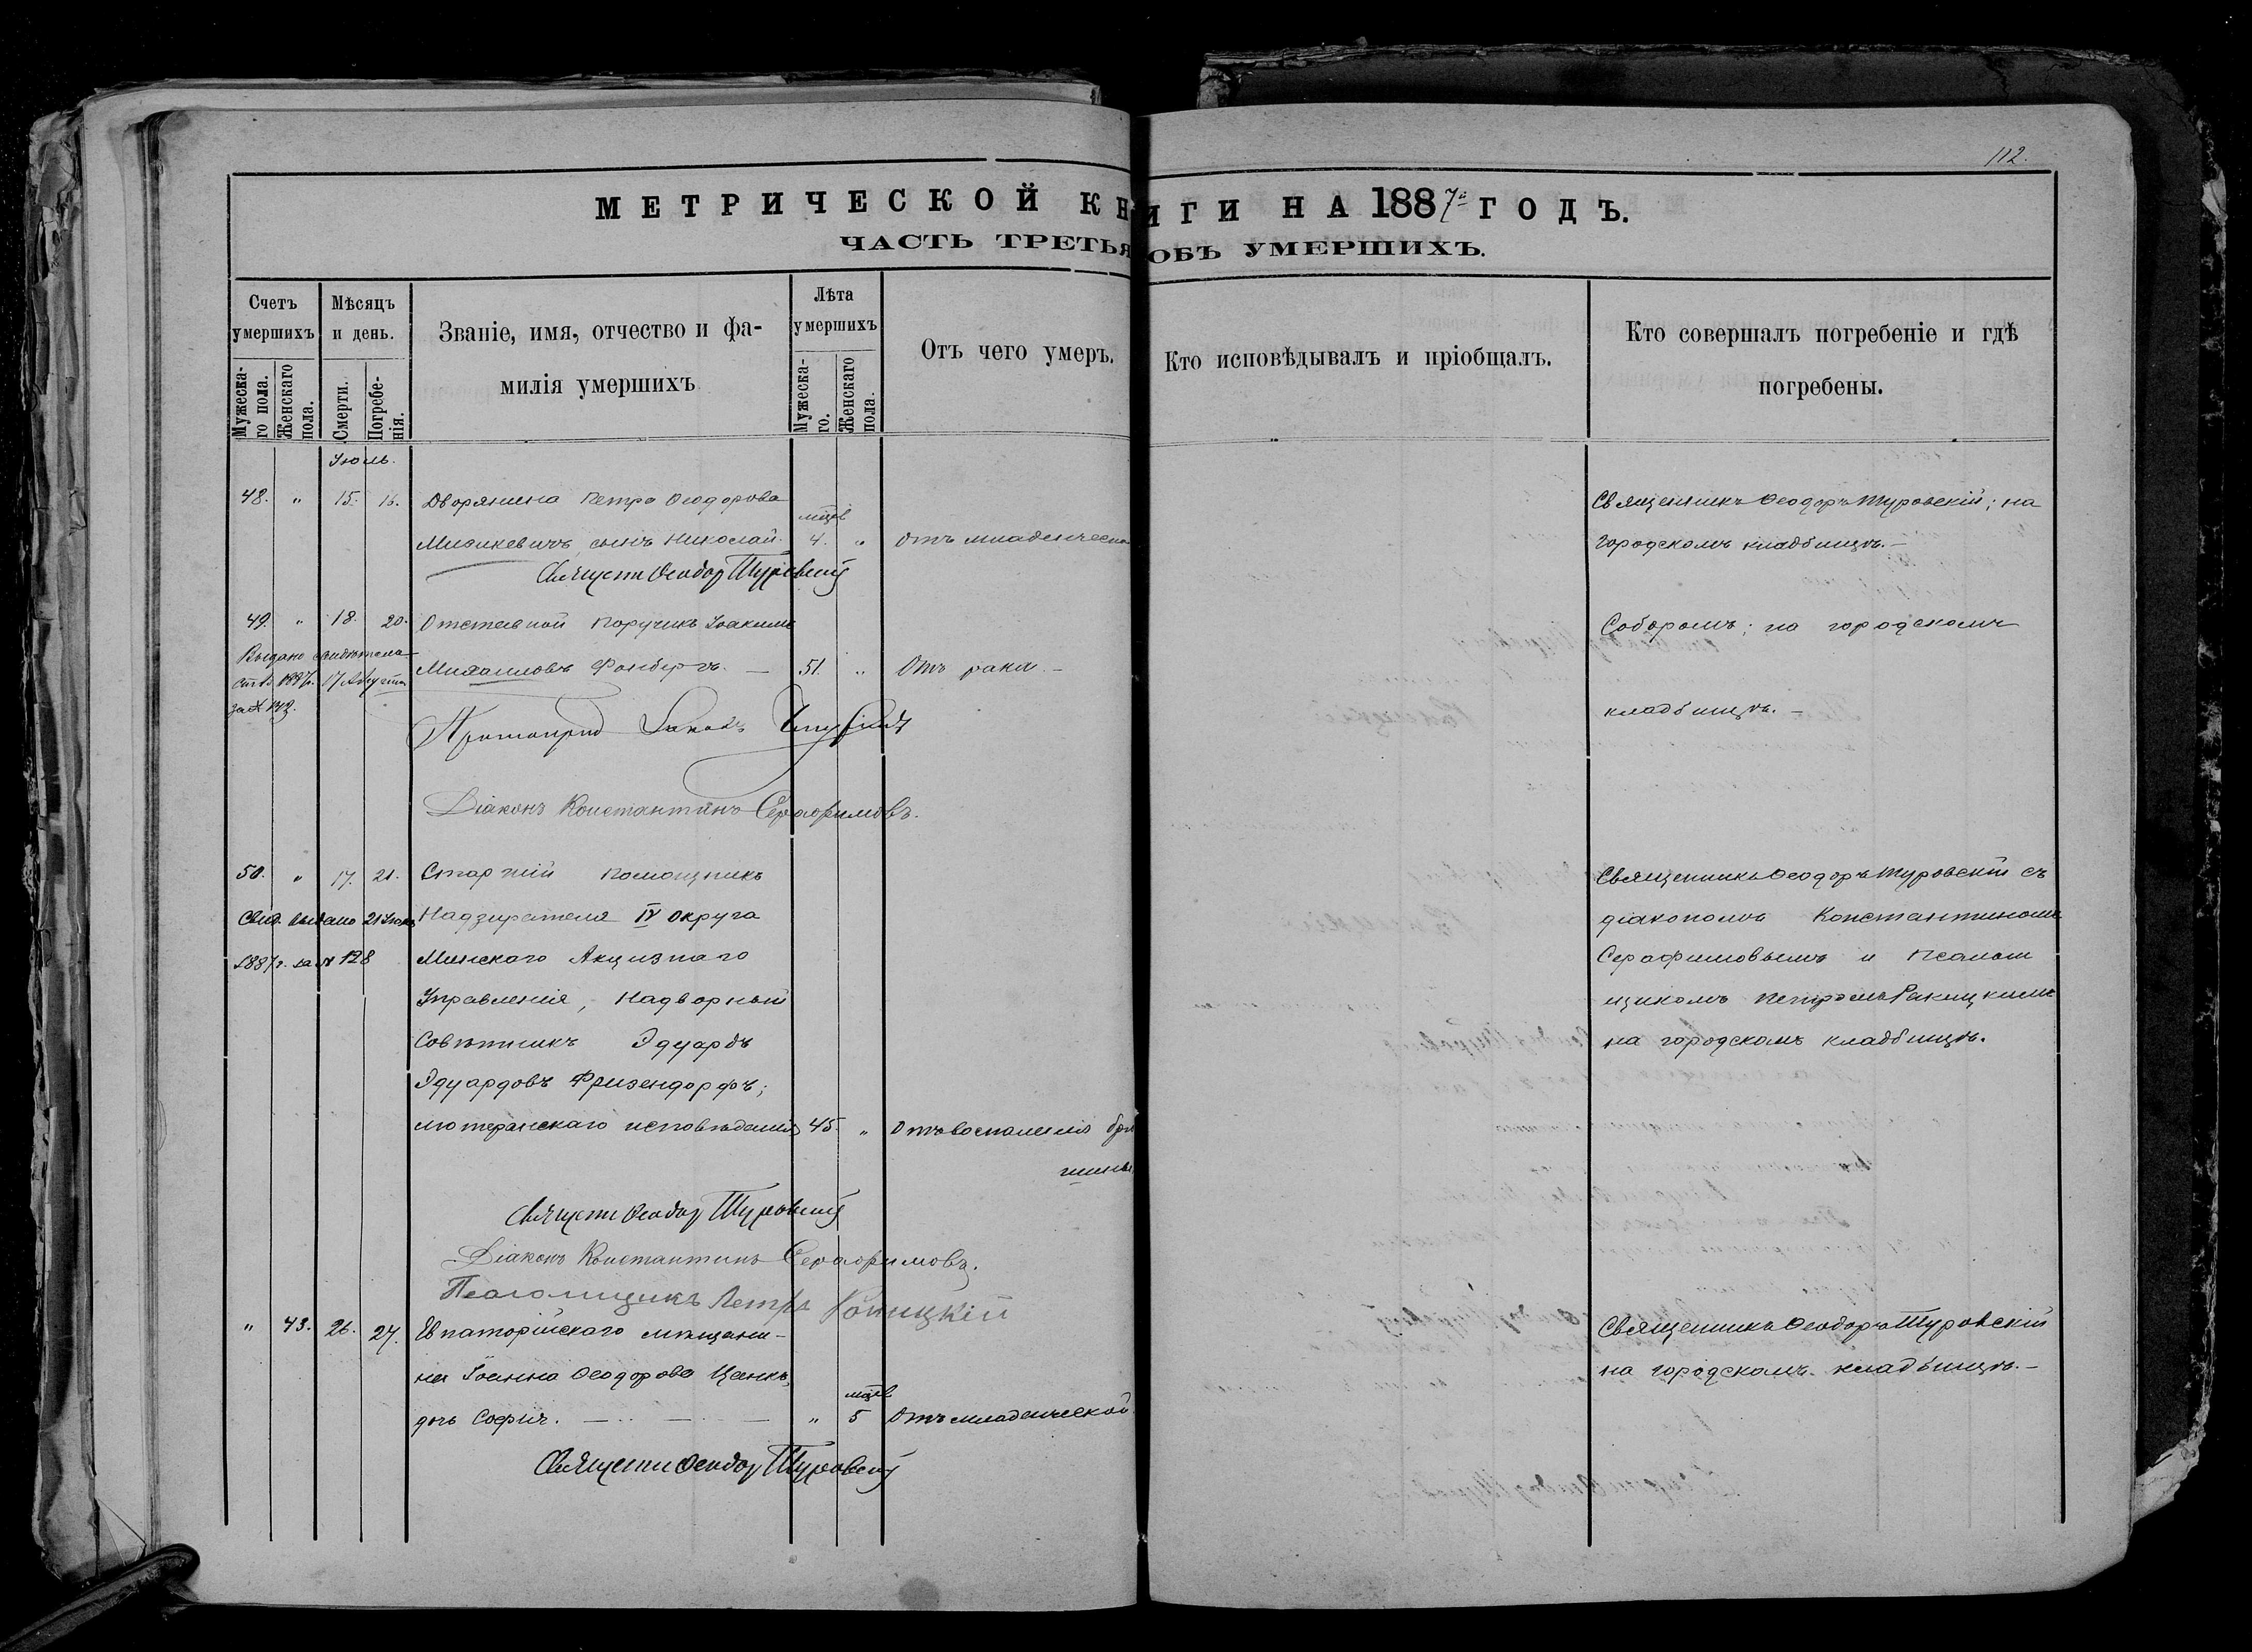 112.
МЕТРИЧЕСКОЙ КНИГИ НА 1887й ГОДЪ.
ЧАСТЬ ТРЕТЬЯ ОБЪ УМЕРШИХЪ.
Счетъ умершихъ
Мужеска-го пола.
Женскаго пола.
Мѣсяцъ и день.
Смерти.
Погребе-нія.
Званіе, имя, отчество и фа-
милія умершихъ
Лѣта умершихъ
Мужеска-го.
Женскаго пола.
Отъ чего умеръ.
Кто исповѣдывалъ и пріобщалъ.
Кто совершалъ погребеніе и гдѣ
погребены.
Іюль.
48. " 15. 16. Дворянина Петра Ѳеодорова
мцев
сынъ Николай. 4. " Отъ младенческо
Священникъ Ѳеодоръ Туровскій; на
городскомъ кладбищѣ.—
Священ Ѳеодор Туровскій
49. " 18. 20. Отставной Поручикъ Іоакимъ
Михаиловъ Фонбергъ. — 51. " Отъ рака.—
Соборомъ; на городскомъ
кладбищѣ.—
Выдано свидѣтель
ств. 1887г. 17 Августа
за №
Протоіерей
Діаконъ Константинъ Серафимовъ.
50. " 17. 21. Старшій помощникъ
Надзирателя IV округа
Минскаго Акцизнаго
Управленія, Надворный
Совѣтникъ Эдуардъ
Эдуардовъ Фризендорфъ;
лютеранскаго исповѣданія 45. " Отъ воспаленія брю
шины
Свид. выдано 21 Іюля
1887г. за № 128
Священникъ Ѳеодоръ Туровскій съ
діакономъ Константиномъ
Серафимовымъ и Псалом
щикомъ Петромъ Ракицкимъ
на городскомъ кладбищѣ.
Священ Ѳеодор Туровскій
Діаконъ Константинъ Серафимовъ.
Псаломщикъ Петръ Ракицкій
" 43. 26. 27. Евпаторійскаго мѣщани-
на Іоанна Ѳеодорова Ценкъ,
мцев
дочь Софія. — " 5 Отъ младенческой
Священникъ Ѳеодоръ Туровскій
на городскомъ кладбищѣ.—
Священ Ѳеодор Туровскій